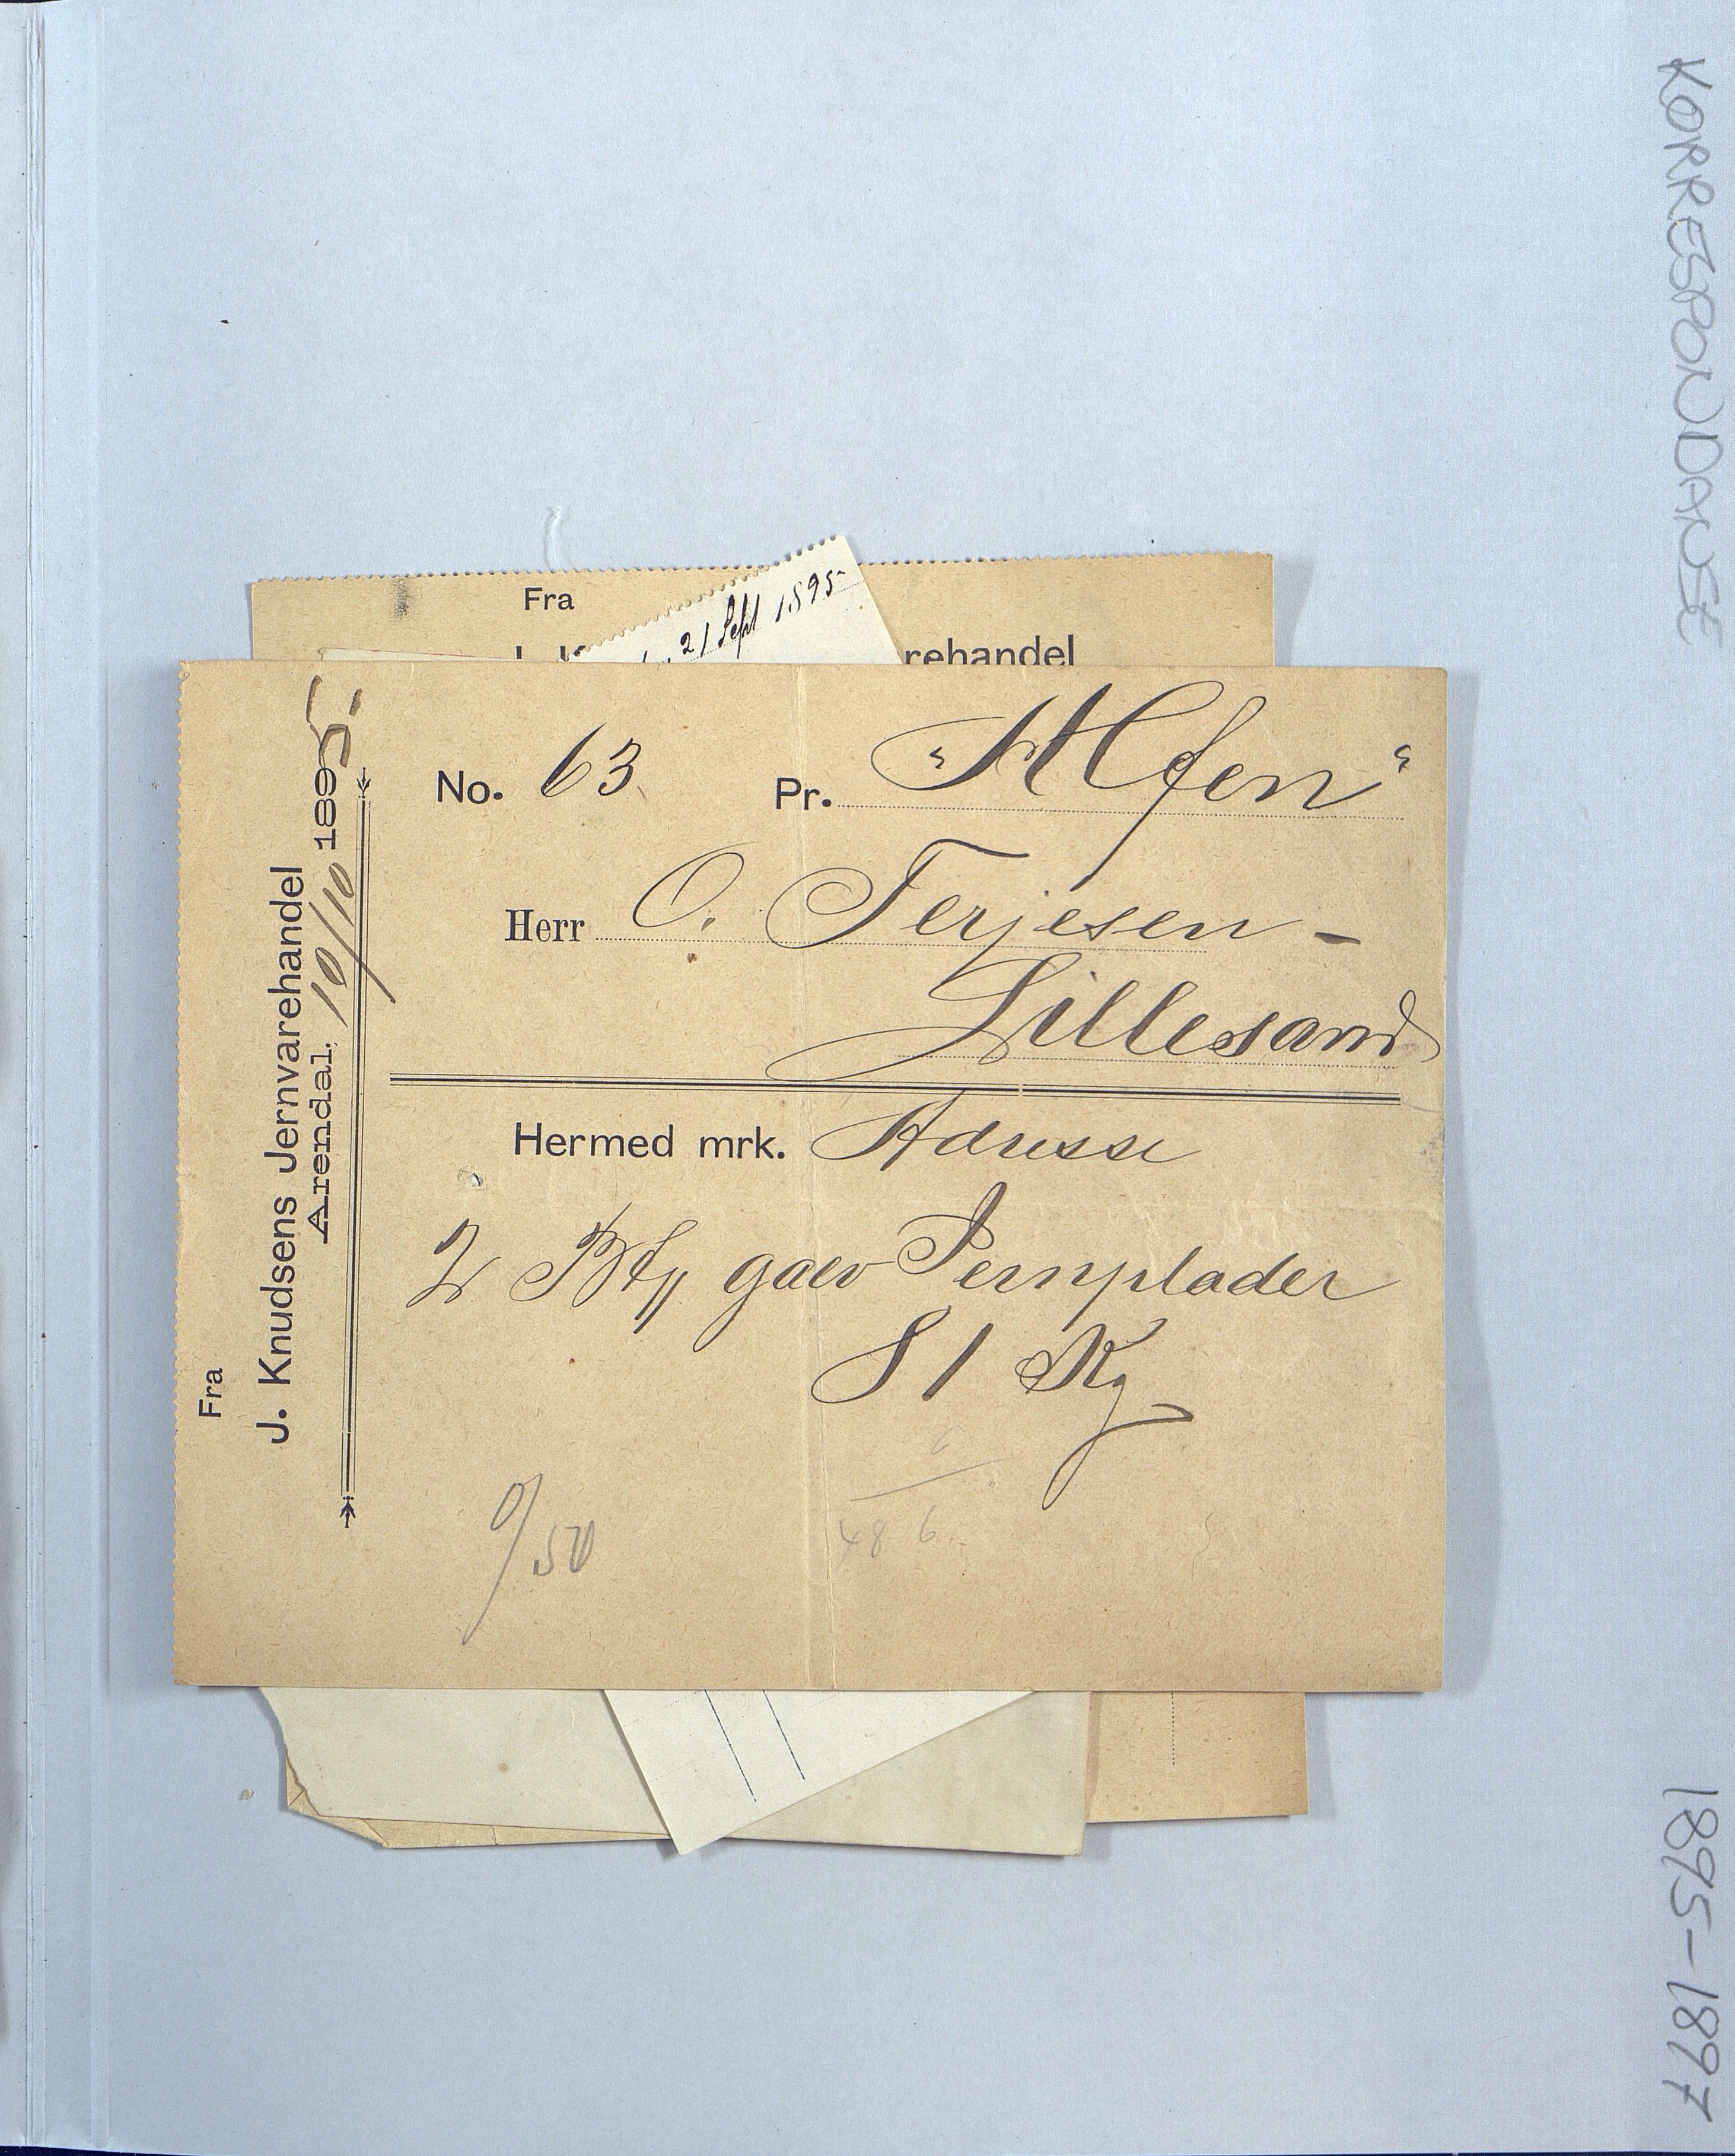 KORRESPONDANSE
1895-1897
Fra
21 Sept 1895
rehandel
Fra
J. Knudsens Jernvarehandel
Arendal. 10/10 1895.
No. 63 Pr. "Alfen"
Herr O. Terjesen -
Lillesand
Hermed mrk. Adresse
2 galv Jernplader
81 Kg
0/50
48 6